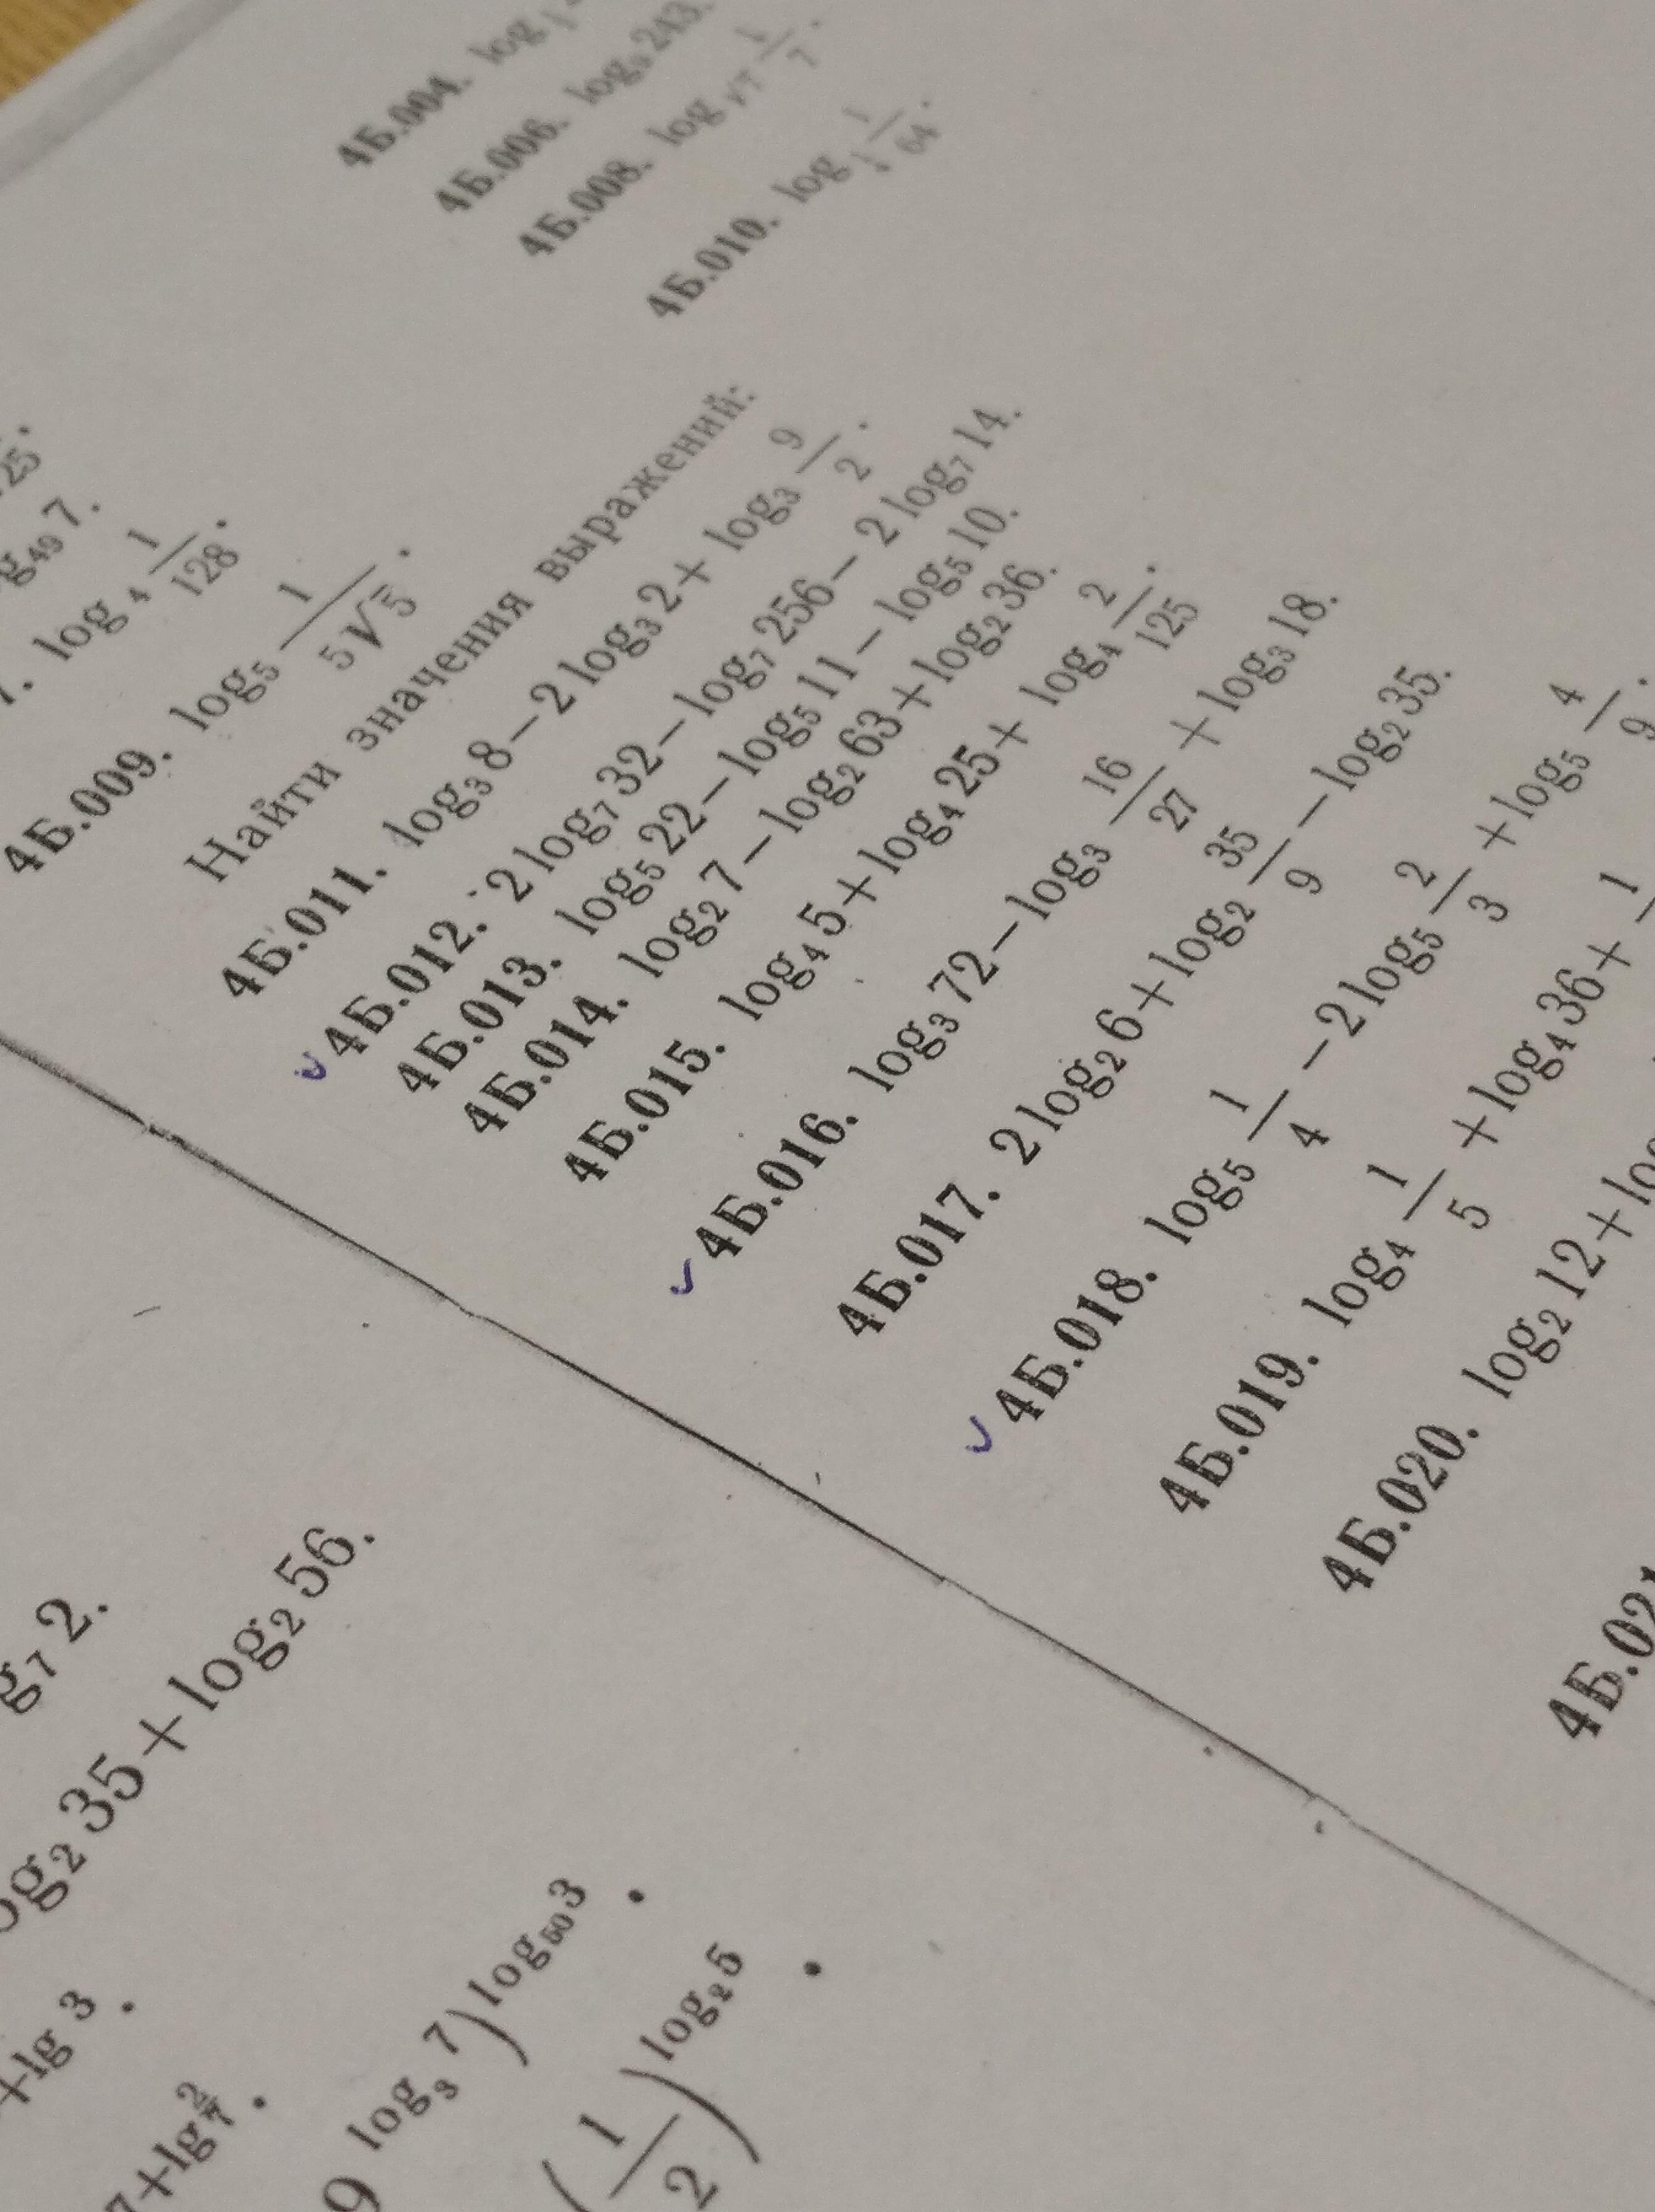 4Б.004. log
4Б.006. log₃ 243.
4Б.008. log_√7 1/7.
4Б.010. log 1/64.
25.
g₄₉ 7.
7. log₄ 1/128.
4Б.009. log₅ 1/(5√5).
Найти значения выражений:
4Б.011. log₃ 8 − 2 log₃ 2 + log₃ 9/2.
4Б.012. 2 log₇ 32 − log₇ 256 − 2 log₇ 14.
4Б.013. log₅ 22 − log₅ 11 − log₅ 10.
4Б.014. log₂ 7 − log₂ 63 + log₂ 36.
4Б.015. log₄ 5 + log₄ 25 + log₄ 2/125.
4Б.016. log₃ 72 − log₃ 16/27 + log₃ 18.
4Б.017. 2 log₂ 6 + log₂ 35/9 − log₂ 35.
4Б.018. log₅ 1/4 − 2 log₅ 2/3 + log₅ 4/9.
4Б.019. log₄ 1/5 + log₄ 36 + 1
4Б.020. log₂ 12 + log
4Б.021
g₇ 2.
og₂ 35 + log₂ 56.
+lg 3.
7+lg 2/7.
9 log₃ 7)^(log₅₀ 3).
(1/2)^(log₂ 5).